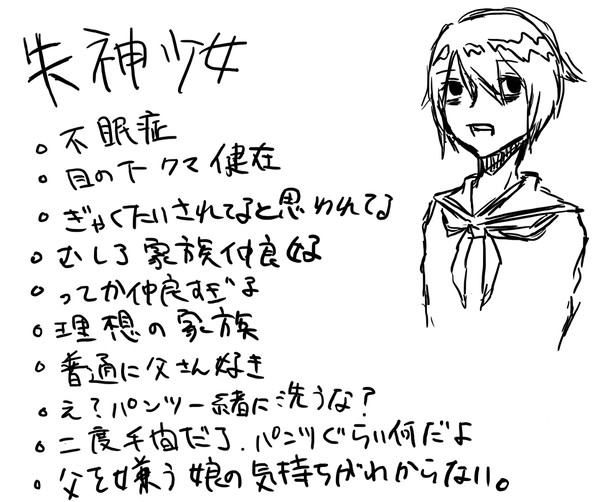 失神少女
。不眠症
。目の下クマ健在
。ぎゃくたいされてると思われてる
。むしろ家族仲良好
。ってか仲良すぎる
。理想の家族
。普通に父さん好き
。え？パンツ一緒に洗うな？
。二度手間だろ、パンツぐらい何だよ
。父を嫌う娘の気持ちがわからない。